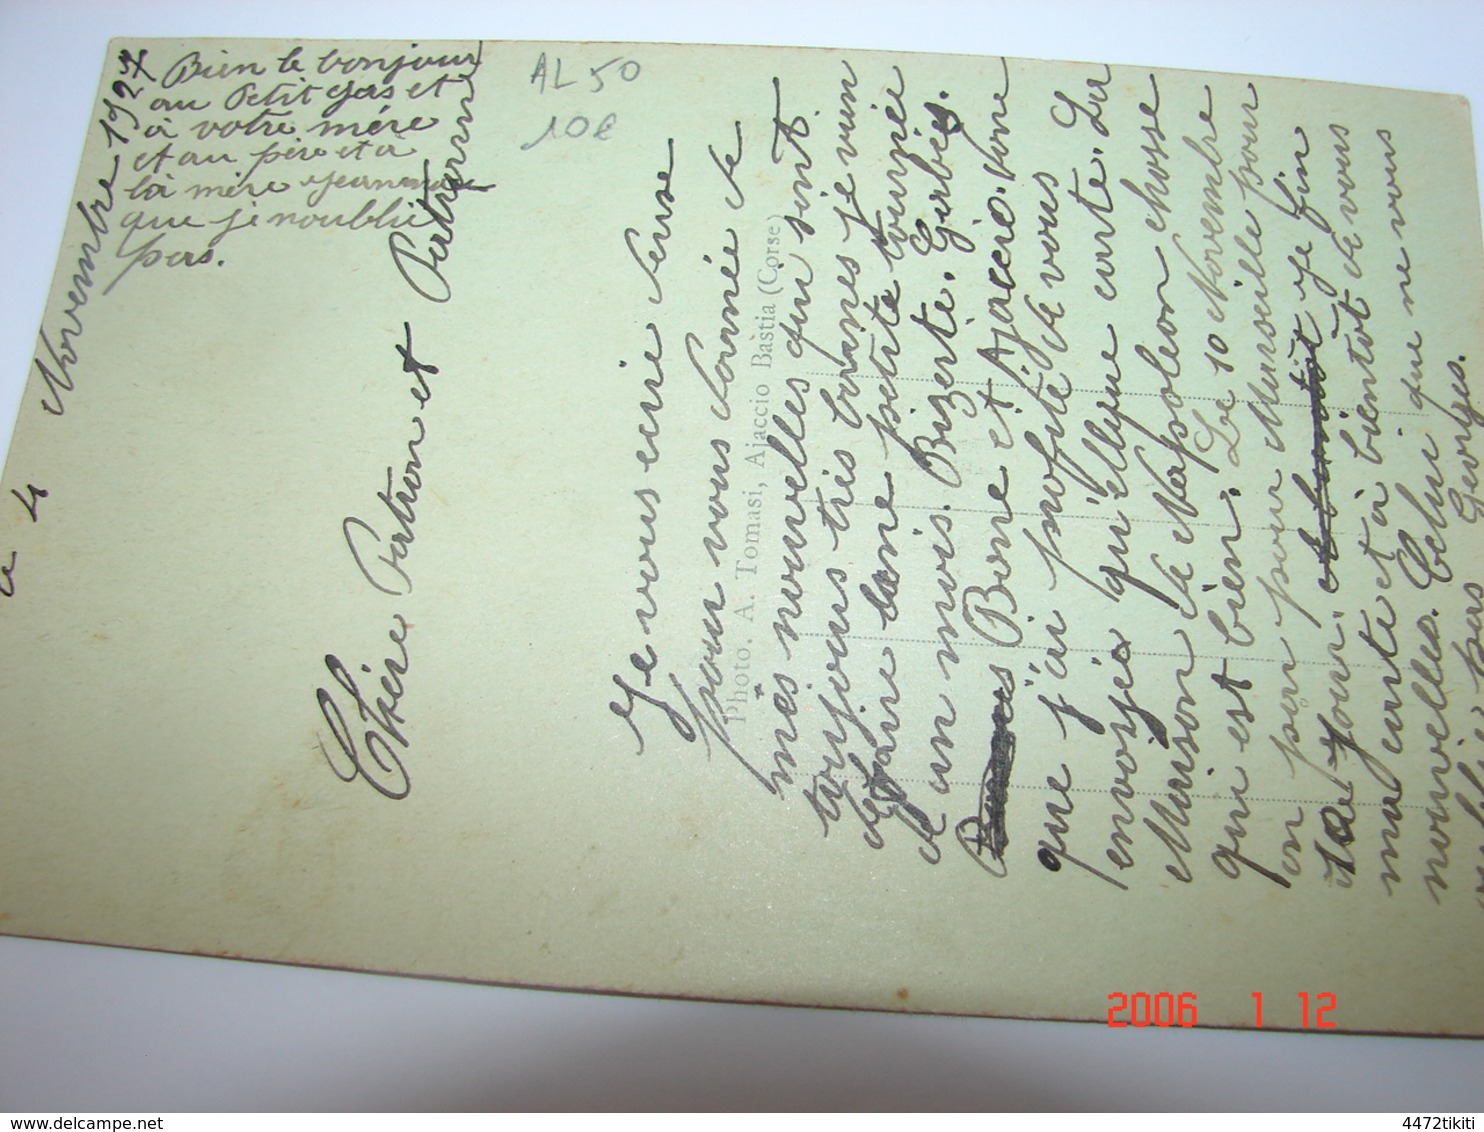 4 Novembre 1927
Chère Patron et Patronne
Je vous ecrie serse
pour vous donnée de
mes nouvelles qui sont
toujours très bonnes je vien
de faire une petite tournée
d'un mois. Bizerte. Gerbies.
Bone et Ajaccio. Vone
que j'ai profité de vous
envoyés qu'éllque carte. La
Maison de Napoleon chosse
qui est bien. Le 10 Novembre
on par pour Marseille pour
jour. Je fin
ma carte et à bientot de vous
nouvelles. Celui que ne vous
oublie pas Georges.
Bien le bonjour
au Petit gas et
à votre mére
et au père et a
la mère Jeanne
que je noublie
pas.
AL 50
10€
Photo. A. Tomasi, Ajaccio Bastia (Corse)
2006 1 12
www.delcampe.net
4472tikiti